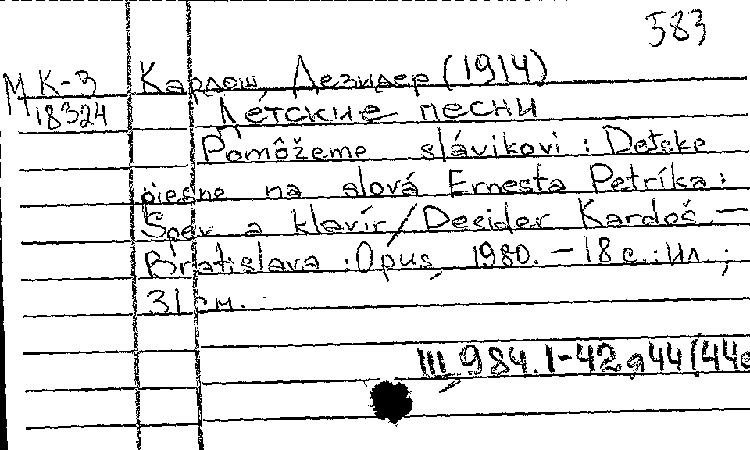 583
МК-3 Кардош, Дезидер (1914)
18324 Детские песни
Pomôžeme slávikovi : Detske
piesne na slová Ernesta Petríka :
Spev a klavír / Decider Kardoš. —
Bratislava : Opus, 1980. — 18 с. : ил. ;
31 см.
III, 984.1-42 я44 (44е